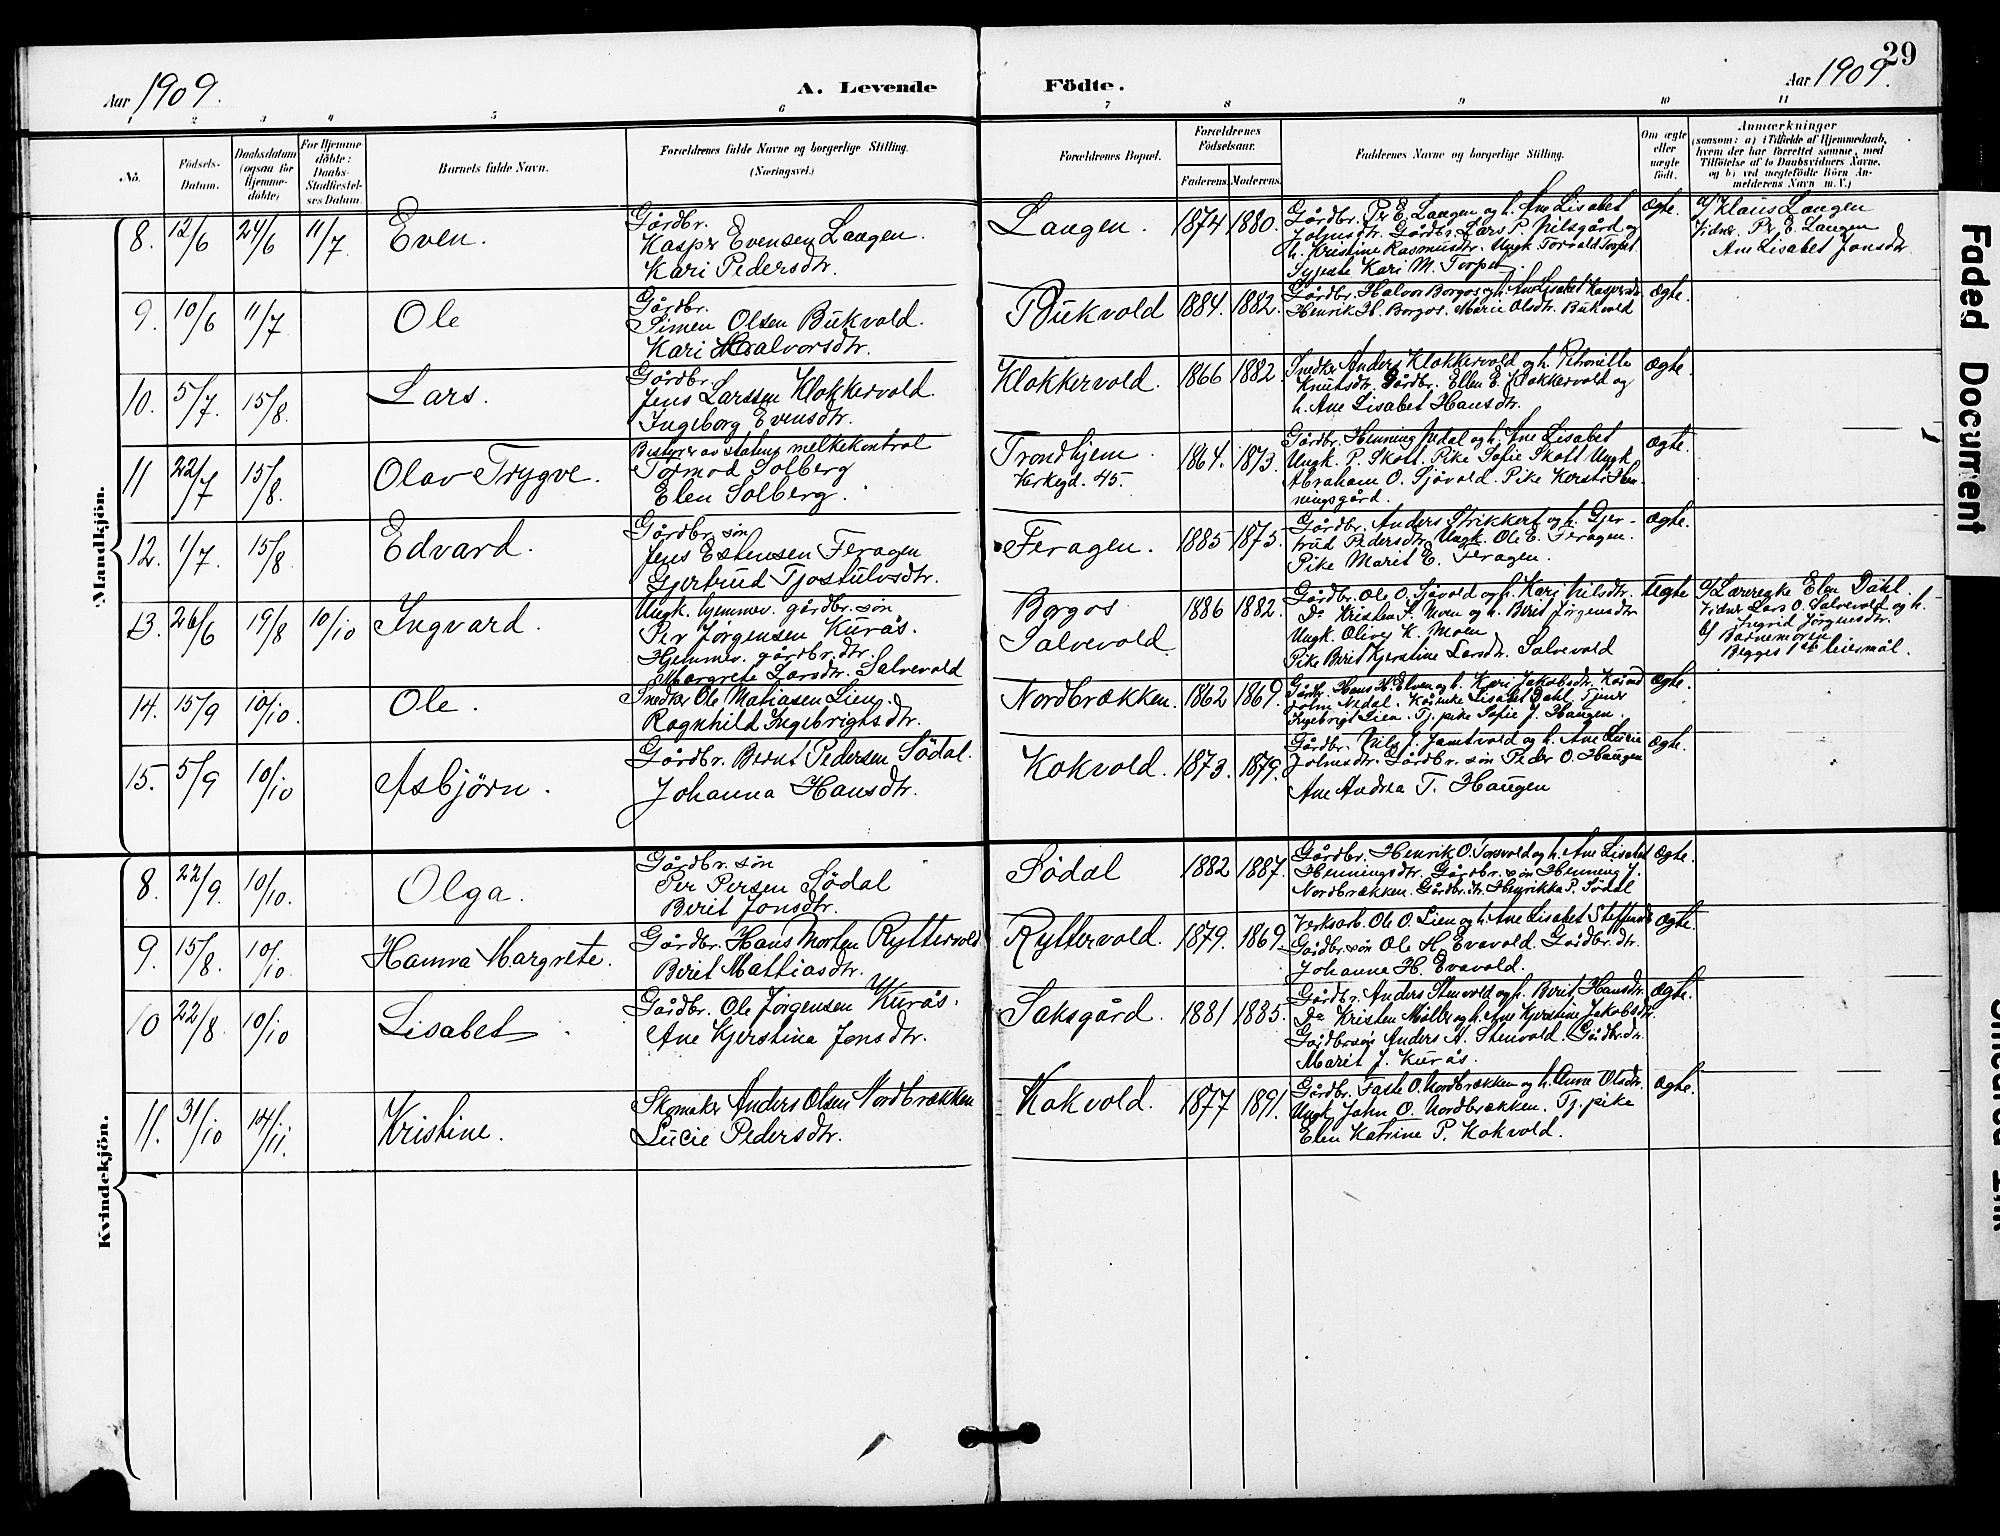 29
Aar 1909.
A. Levende
Födte.
Aar 1909.
1 2 3 4 5 6 7 8 9 10 11
No.
Födsels-
Datum.
Daabsdatum
(ogsaa for
Hjemme-
döbte)
For Hjemme
döbte:
Daabs-
Stadfæstel-
ses Datum.
Barnets fulde Navn.
Forældrenes fulde Navne og borgerlige Stilling.
(Næringsvei.)
Forældrenes Bopæl.
Forældrenes
Födselsaar.
Faderens. Moderens.
Faddernes Navne og borgerlige Stilling.
Om ægte
eller
uægte
födt.
Anmærkninger
(saasom: a) i Tilfælde af Hjemmedaab,
hvem der har forrettet samme, med
Tilföielse af to Daabsvidners Navne,
og b) ved uægtefödte Börn An-
melderens Navn m. V.)
Mandkjön.
8. 12/6 24/6 11/7 Even.
Gårdbr.
Kasper Evensen Langen.
Kari Pedersdtr.
Langen 1874 1880.
Gårdbr. Pr E. Langen og h. Ane Lisabet
Johnsdtr. Gårdbr. Lars P. Nilsgård og
h. Kristine Rasmusdtr. Ungk. Torvald Torpet
Sypeste Kari M. Torpet.
Ægte.
a/ Klaus Langen
Vidner Pr. E. Langen
Ane Lisabet Jonsdtr
9. 10/6 11/7 Ole
Gårdbr.
Simen Olsen Bukvold.
Kari Halvorsdtr.
Bukvold 1884. 1882.
Gårdbr. Halvor Borgos og h. An Lisabet Kaspersdtr
Henrik H. Borgos. Marie Olsdtr. Bukvold
Ægte.
10. 5/7. 15/8. Lars.
Gårdbr.
Jens Larssen Klokkervold.
Ingeborg Evensdtr.
Klokkervold. 1866 1882
Snedker Anders Klokkervold og h. Petronille
Knutsdtr. Gårdbr. Ellen E. Klokkervold og
h. Ane Lisabet Hansdtr.
Ægte.
11 22/7 15/8. Olav Trygve.
Bestyrer av statens melkekontrol
Tormod Solberg
Elen Solberg.
Trondhjem
Kerkegd. 45.
1864. 1873.
Gårdbr. Henning Nedal og h. Ane Lisabet
Ungk. P. Skott. Pike Sofie Skott. Ungk.
Abraham O. Sjövold. Pike Kersti Hen
ningsgård.
Ægte.
12. 1/7. 15/8. Edvard.
Gårdbr. sön
Jens Estensen Feragen
Gjertrud Tjostulvsdtr.
Feragen. 1885 1875.
Gårdbr. Anders Strikkert og h. Gjer-
trud Pedersdtr. Ungk. Ole E. Feragen.
Pike Marit E. Feragen.
Ægte.
13. 26/6 19/8 10/10 Ingvard.
Ungk. hjemmev. gårdbr. sön
Per Jørgensen Kurås.
Hjemmev. gårdbr. dtr.
Margrete Larsdtr. Salvevold
Borgos
Salvevold
1886 1882.
Gårdbr. Ole O. Sjövold og h. Kari Nilsdtr.
Do Kristen S. Moen og h. Berit Jørgensdtr
Ungk. Oliver K. Moen
Pike Berit Kjerstine Larsdtr. Salvevold
Uegte
a/ Lærerinde Elen Dahl.
Vidner Lars O. Salvevold og h.
Ingrid Jörgensdtr.
b/ Barnemoren
Begges 1ste leiermål.
14. 15/9 10/10. Ole.
Snedker Ole Matiasen Lien.
Ragnhild Ingebrigtsdtr.
Nordbrækken. 1862 1869.
Gårdbr. Hans H. Elven og h. Kari Jakobsdtr.
John Nedal. Lisabet Dahl. Tjener
Ingebrigt Lien. Tj. pike Sofie J. Haugen.
Ægte.
15. 5/9 10/10 Asbjörn.
Gårdbr. Bernt Pedersen Södal.
Johanna Hansdtr.
Kokvold. 1873. 1879.
Gårdbr. Nils J. Jamtvold og h. Ane Lucie
Johnsdtr. Gårdbr. sön Peder O. Haugen
Ane Andrea T. Haugen
Ægte.
Kvindekjön.
8. 22/9. 10/10. Olga.
Gårdbr. sön
Per Persen Södal
Berit Jonsdtr.
Södal 1882 1887.
Gårdbr. Henrik O. og h. Ane Lisabet
Henningsdtr. Gårdbr. sön Henning J.
Nordbrækken. Gårdbr. dtr. Henrikka P. Södal
Ægte.
9. 15/8. 10/10. Hanna Margrete.
Gårdbr. Hans Morten Ryttervold
Berit Mattiasdtr.
Ryttervold. 1879. 1869.
Verksarb. Ole O. Lien og h. Ane Lisabet Steffensdtr
Gårdbr. sön Ole H. Evavold. Gårdbr. dtr.
Johanna H. Evavold.
Ægte.
10 22/8. 10/10 Lisabet.
Gårdbr. Ole Jørgensen Kurås.
Ane Kjerstina Jonsdtr.
Saksgård. 1881 1885.
Gårdbr. Anders Stenvold og h. Berit Hansdtr.
Do Kristen Möller og h. Ane Kjerstine Jakobsdtr.
Gårdbr. sön Anders A. Stenvold. Gårdbr. dtr.
Marit J. Kurås.
Ægte.
11. 31/10 14/11. Kristine.
Skomaker Anders Olsen Nordbrækken
Lucie Pedersdtr.
Kokvold. 1877 1891.
Gårdbr. Faste O. Nordbrækken og h. Anna Olsdtr.
Ungk. John O. Nordbrækken. Tj. pike
Elen Katrine P. Kokvold.
Ægte.
Faded Document